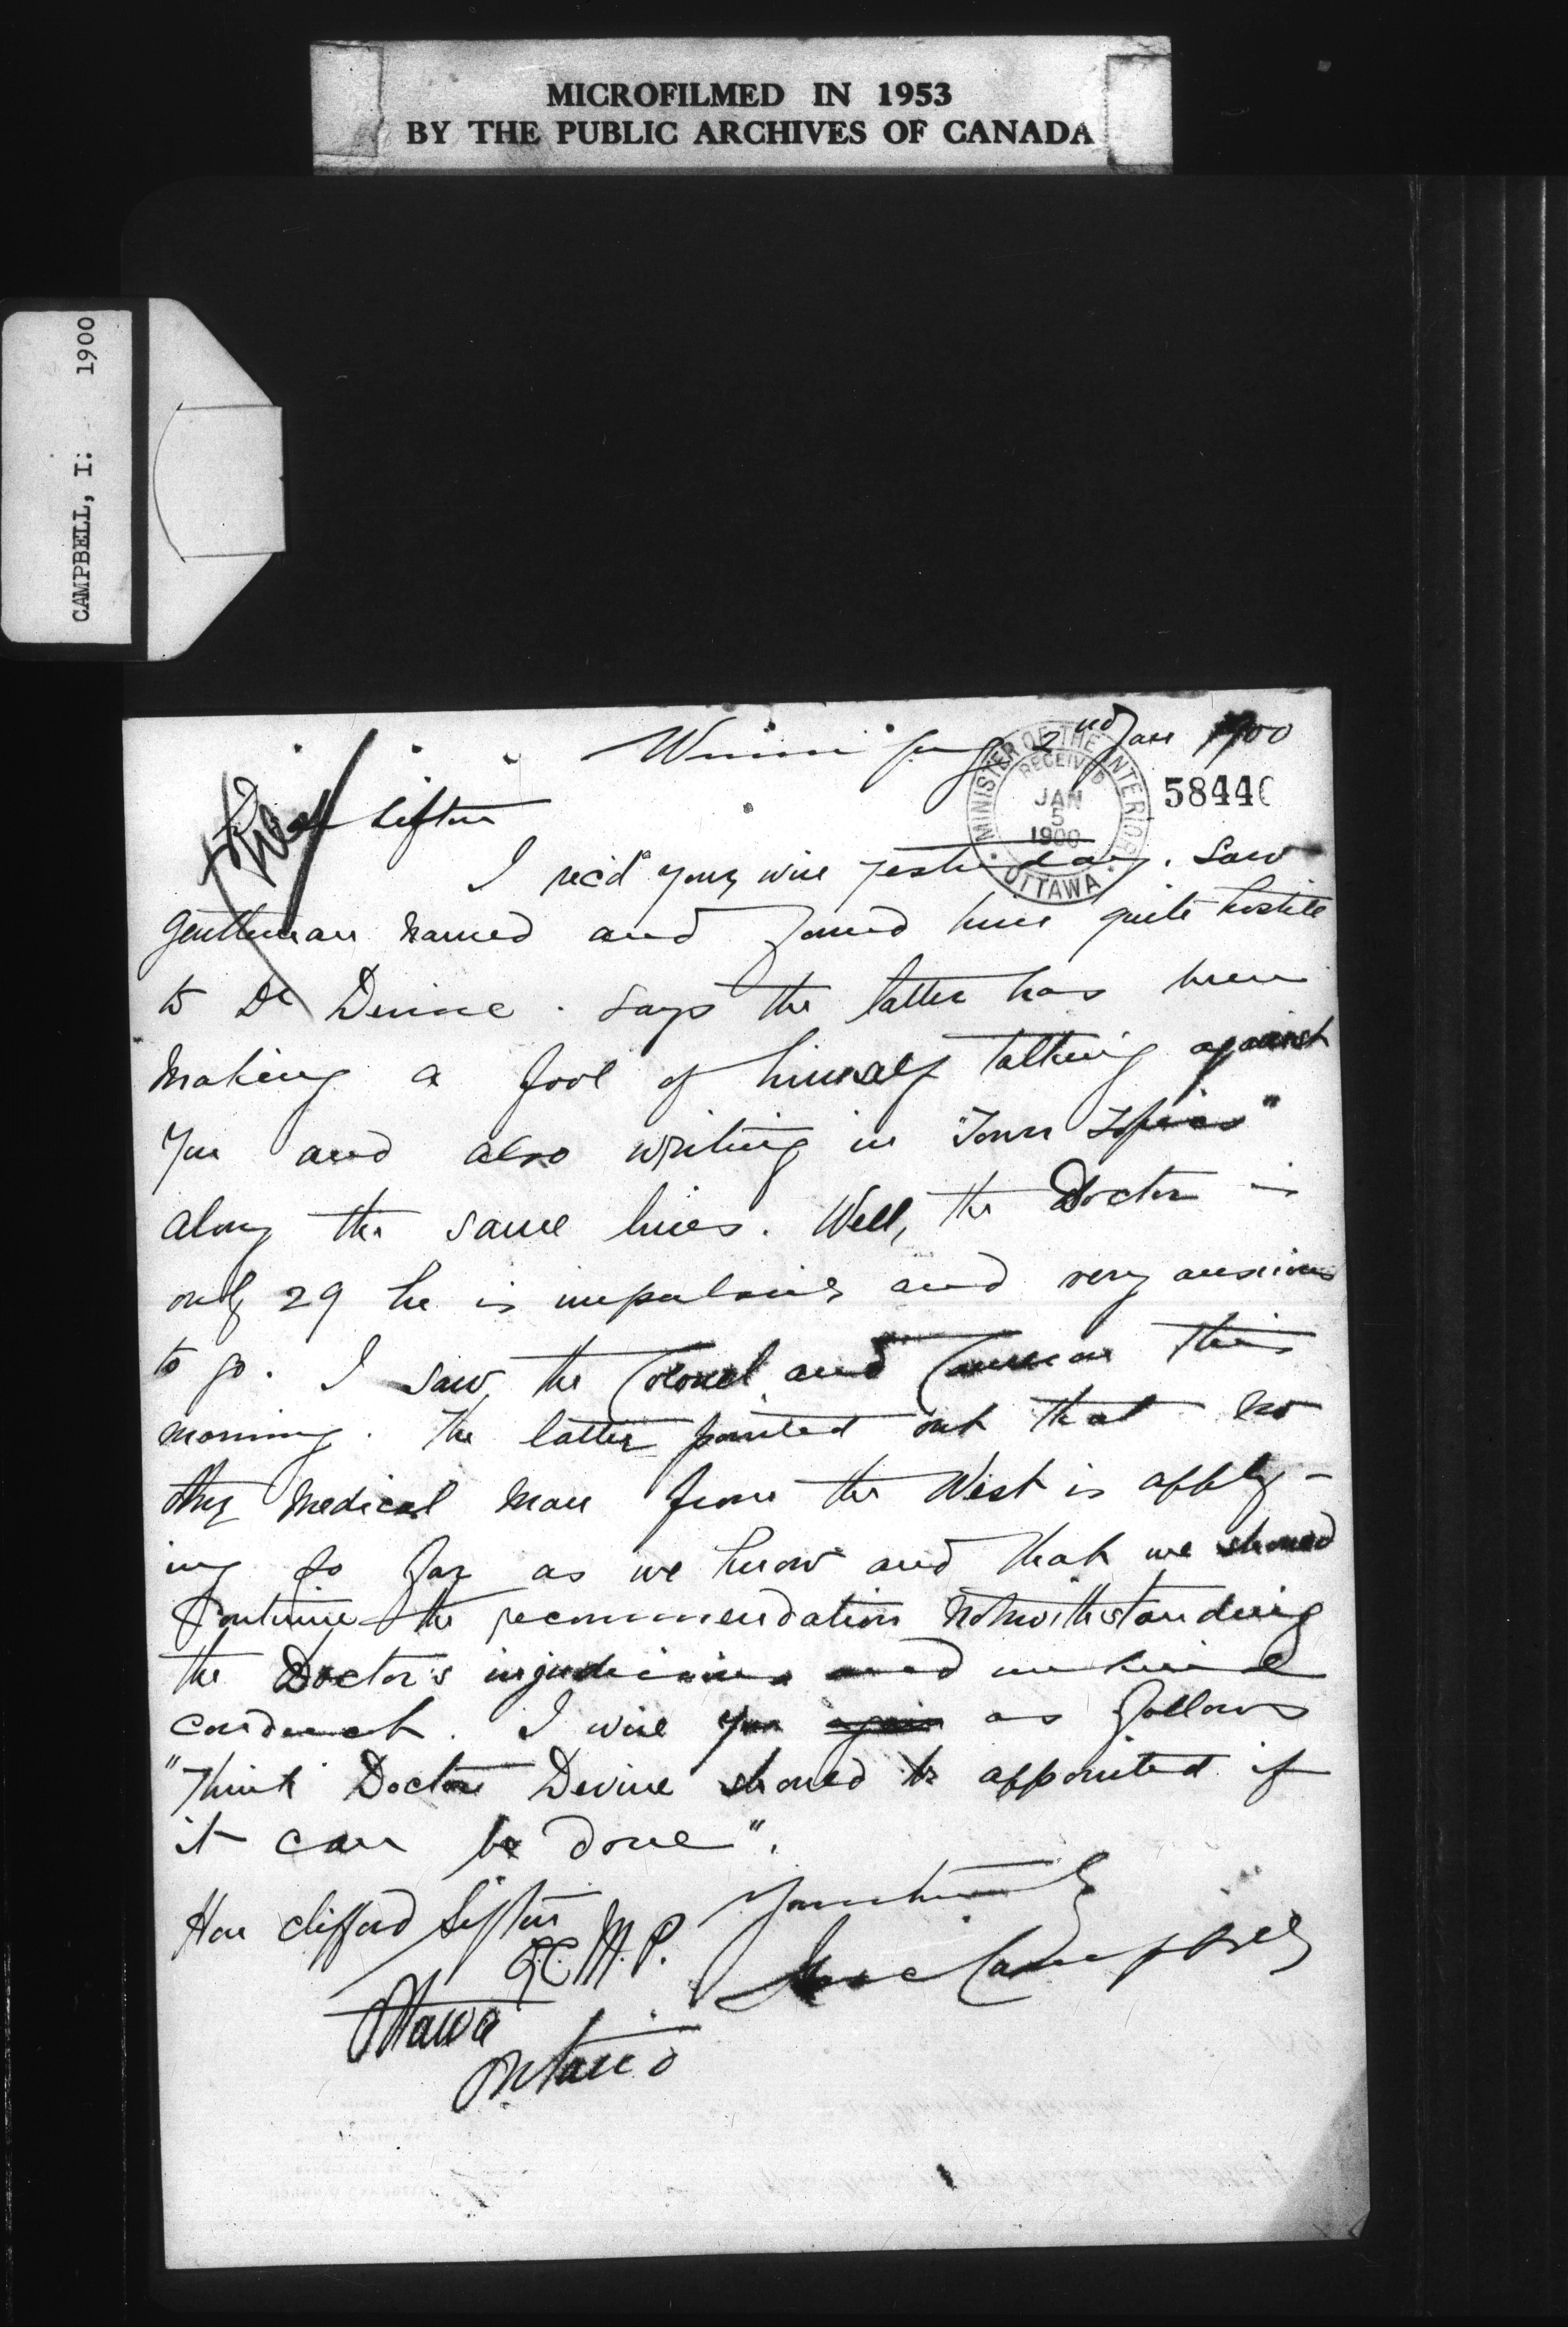 MICROFILMED IN 1953
BY THE PUBLIC ARCHIVES OF CANADA
CAMPBELL, I: 1900
Winnipeg 2nd Jan 1900
MINISTER OF THE INTERIOR
RECEIVED
JAN
5
1900
OTTAWA
58440
Dear Sifton
I rec'd your wire yesterday. Saw
gentleman named and found him quite hostile
to Dr Devine. Says the latter has been
making a fool of himself talking against
you and also writing in "Town Topics"
along the same lines. Well, the Doctor is
only 29 he is impulsive and very anxious
to go. I saw the Colonel and Cameron this
morning. The latter pointed out that no
other medical man from the West is apply-
ing so far as we know and that we should
continue the recommendation notwithstanding
the Doctor's injudicious and unkind
conduct. I wire you again as follows
"Think Doctor Devine should be appointed if
it can be done".
Yours truly
Hon Clifford Sifton
Q.C. M.P.
Isaac Campbell
Ottawa
Ontario